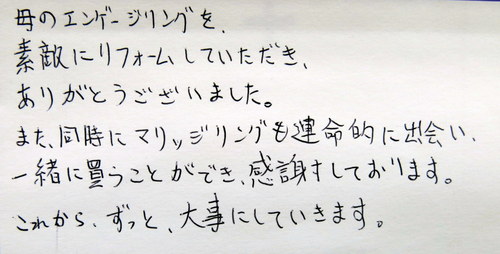 母のエンゲージリングを、
素敵にリフォームしていただき、
ありがとうございました。
また、同時にマリッジリングも運命的に出会い、
一緒に買うことができ、感謝しております。
これから、ずっと、大事にしていきます。